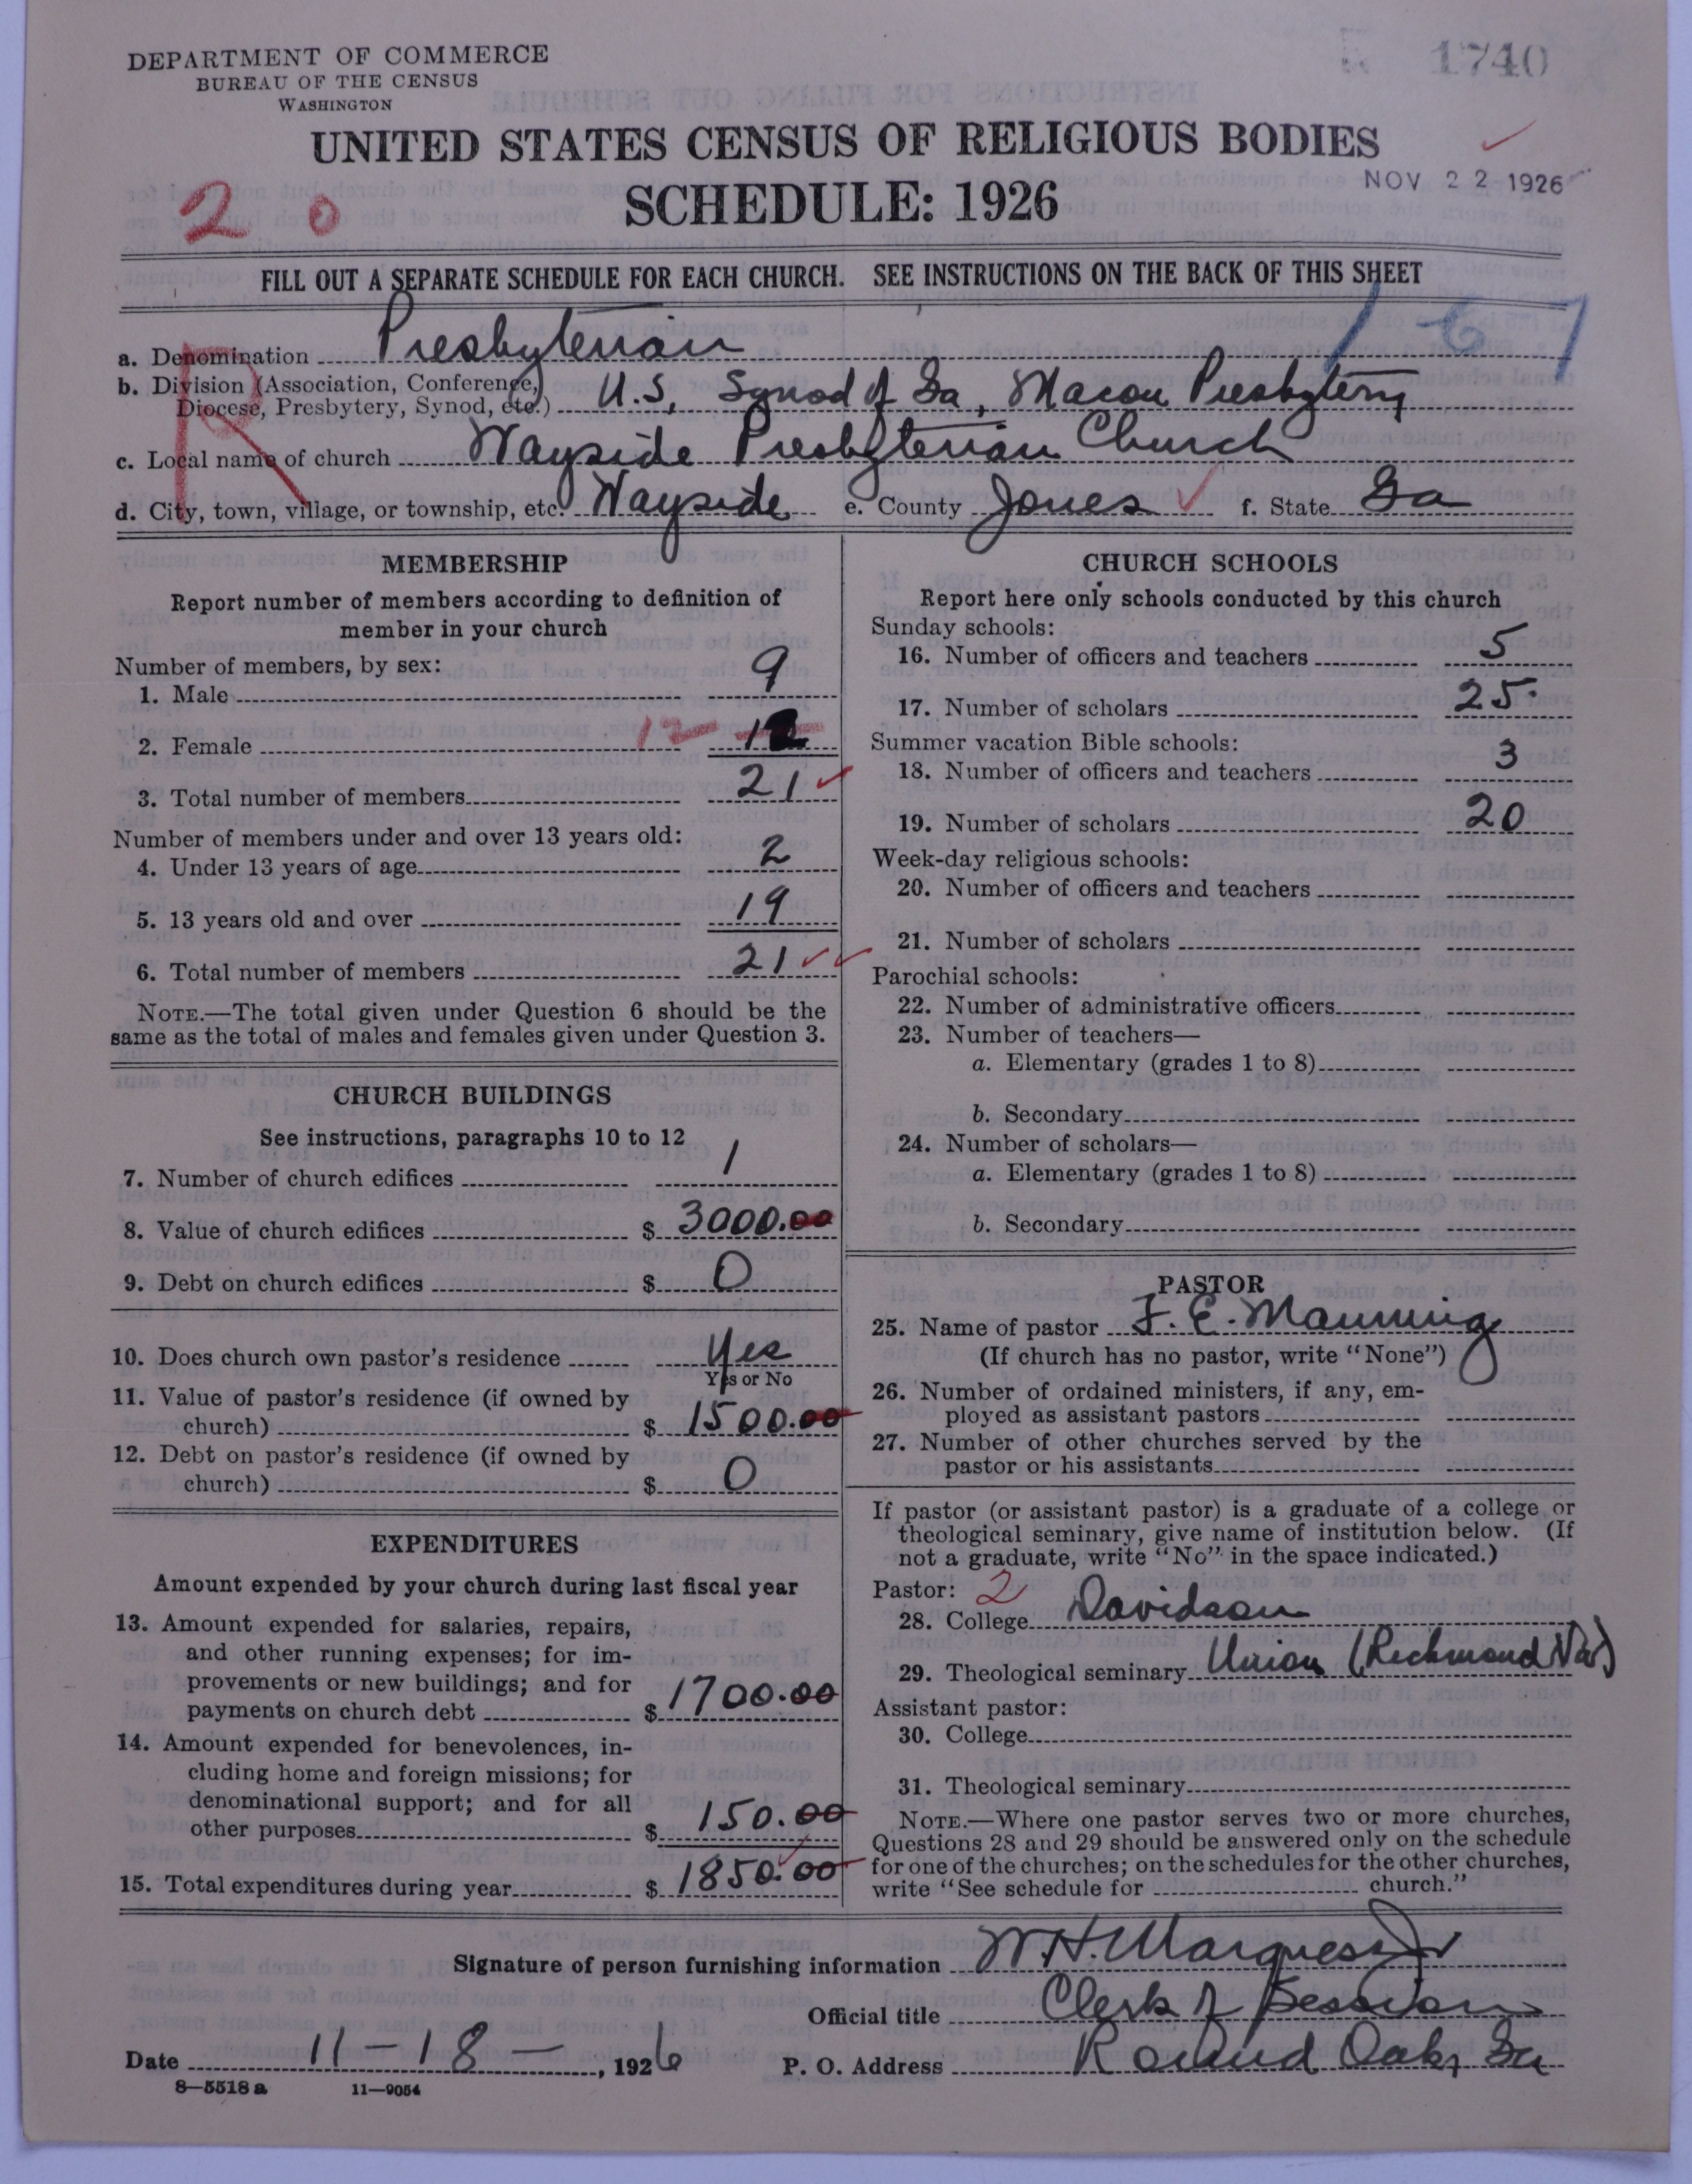 DEPARTMENT OF COMMERCE
BUREAU OF THE CENSUS
WASHINGTON
1740
UNITED STATES CENSUS OF RELIGIOUS BODIES
SCHEDULE: 1926
NOV 22 1926
2 0
FILL OUT A SEPARATE SCHEDULE FOR EACH CHURCH. SEE INSTRUCTIONS ON THE BACK OF THIS SHEET
1-67
R
a. Denomination Presbyterian
b. Division (Association, Conference,
Diocese, Presbytery, Synod, etc.) U.S, Synod of Ga, Macon Presbytery
c. Local name of church Wayside Presbyterian Church
d. City, town, village, or township, etc. Wayside e. County Jones f. State Ga
MEMBERSHIP
Report number of members according to definition of
member in your church
Number of members, by sex:
1. Male 9
2. Female 12 12
3. Total number of members 21
Number of members under and over 13 years old:
4. Under 13 years of age 2
5. 13 years old and over 19
6. Total number of members 21
NOTE.—The total given under Question 6 should be the
same as the total of males and females given under Question 3.
CHURCH BUILDINGS
See instructions, paragraphs 10 to 12
7. Number of church edifices 1
8. Value of church edifices $ 3000.00
9. Debt on church edifices $ 0
10. Does church own pastor's residence Yes
Yes or No
11. Value of pastor's residence (if owned by
church) $ 1500.00
12. Debt on pastor's residence (if owned by
church) $ 0
EXPENDITURES
Amount expended by your church during last fiscal year
13. Amount expended for salaries, repairs,
and other running expenses; for im-
provements or new buildings; and for
payments on church debt $ 1700.00
14. Amount expended for benevolences, in-
cluding home and foreign missions; for
denominational support; and for all
other purposes $ 150.00
15. Total expenditures during year $ 1850.00
CHURCH SCHOOLS
Report here only schools conducted by this church
Sunday schools:
16. Number of officers and teachers 5
17. Number of scholars 25.
Summer vacation Bible schools:
18. Number of officers and teachers 3
19. Number of scholars 20
Week-day religious schools:
20. Number of officers and teachers
21. Number of scholars
Parochial schools:
22. Number of administrative officers
23. Number of teachers—
a. Elementary (grades 1 to 8)
b. Secondary
24. Number of scholars—
a. Elementary (grades 1 to 8)
b. Secondary
PASTOR
25. Name of pastor F. E. Manning
(If church has no pastor, write "None")
26. Number of ordained ministers, if any, em-
ployed as assistant pastors
27. Number of other churches served by the
pastor or his assistants
If pastor (or assistant pastor) is a graduate of a college or
theological seminary, give name of institution below. (If
not a graduate, write "No" in the space indicated.)
Pastor: 2
28. College Davidson
29. Theological seminary Union (Richmond Va)
Assistant pastor:
30. College
31. Theological seminary
NOTE.—Where one pastor serves two or more churches,
Questions 28 and 29 should be answered only on the schedule
for one of the churches; on the schedules for the other churches,
write "See schedule for church."
Signature of person furnishing information W. H. Marquess Jr
Official title Clerk of Session
Date 11-18-, 1926 P. O. Address Round Oak, Ga
8—5518 a 11—9054